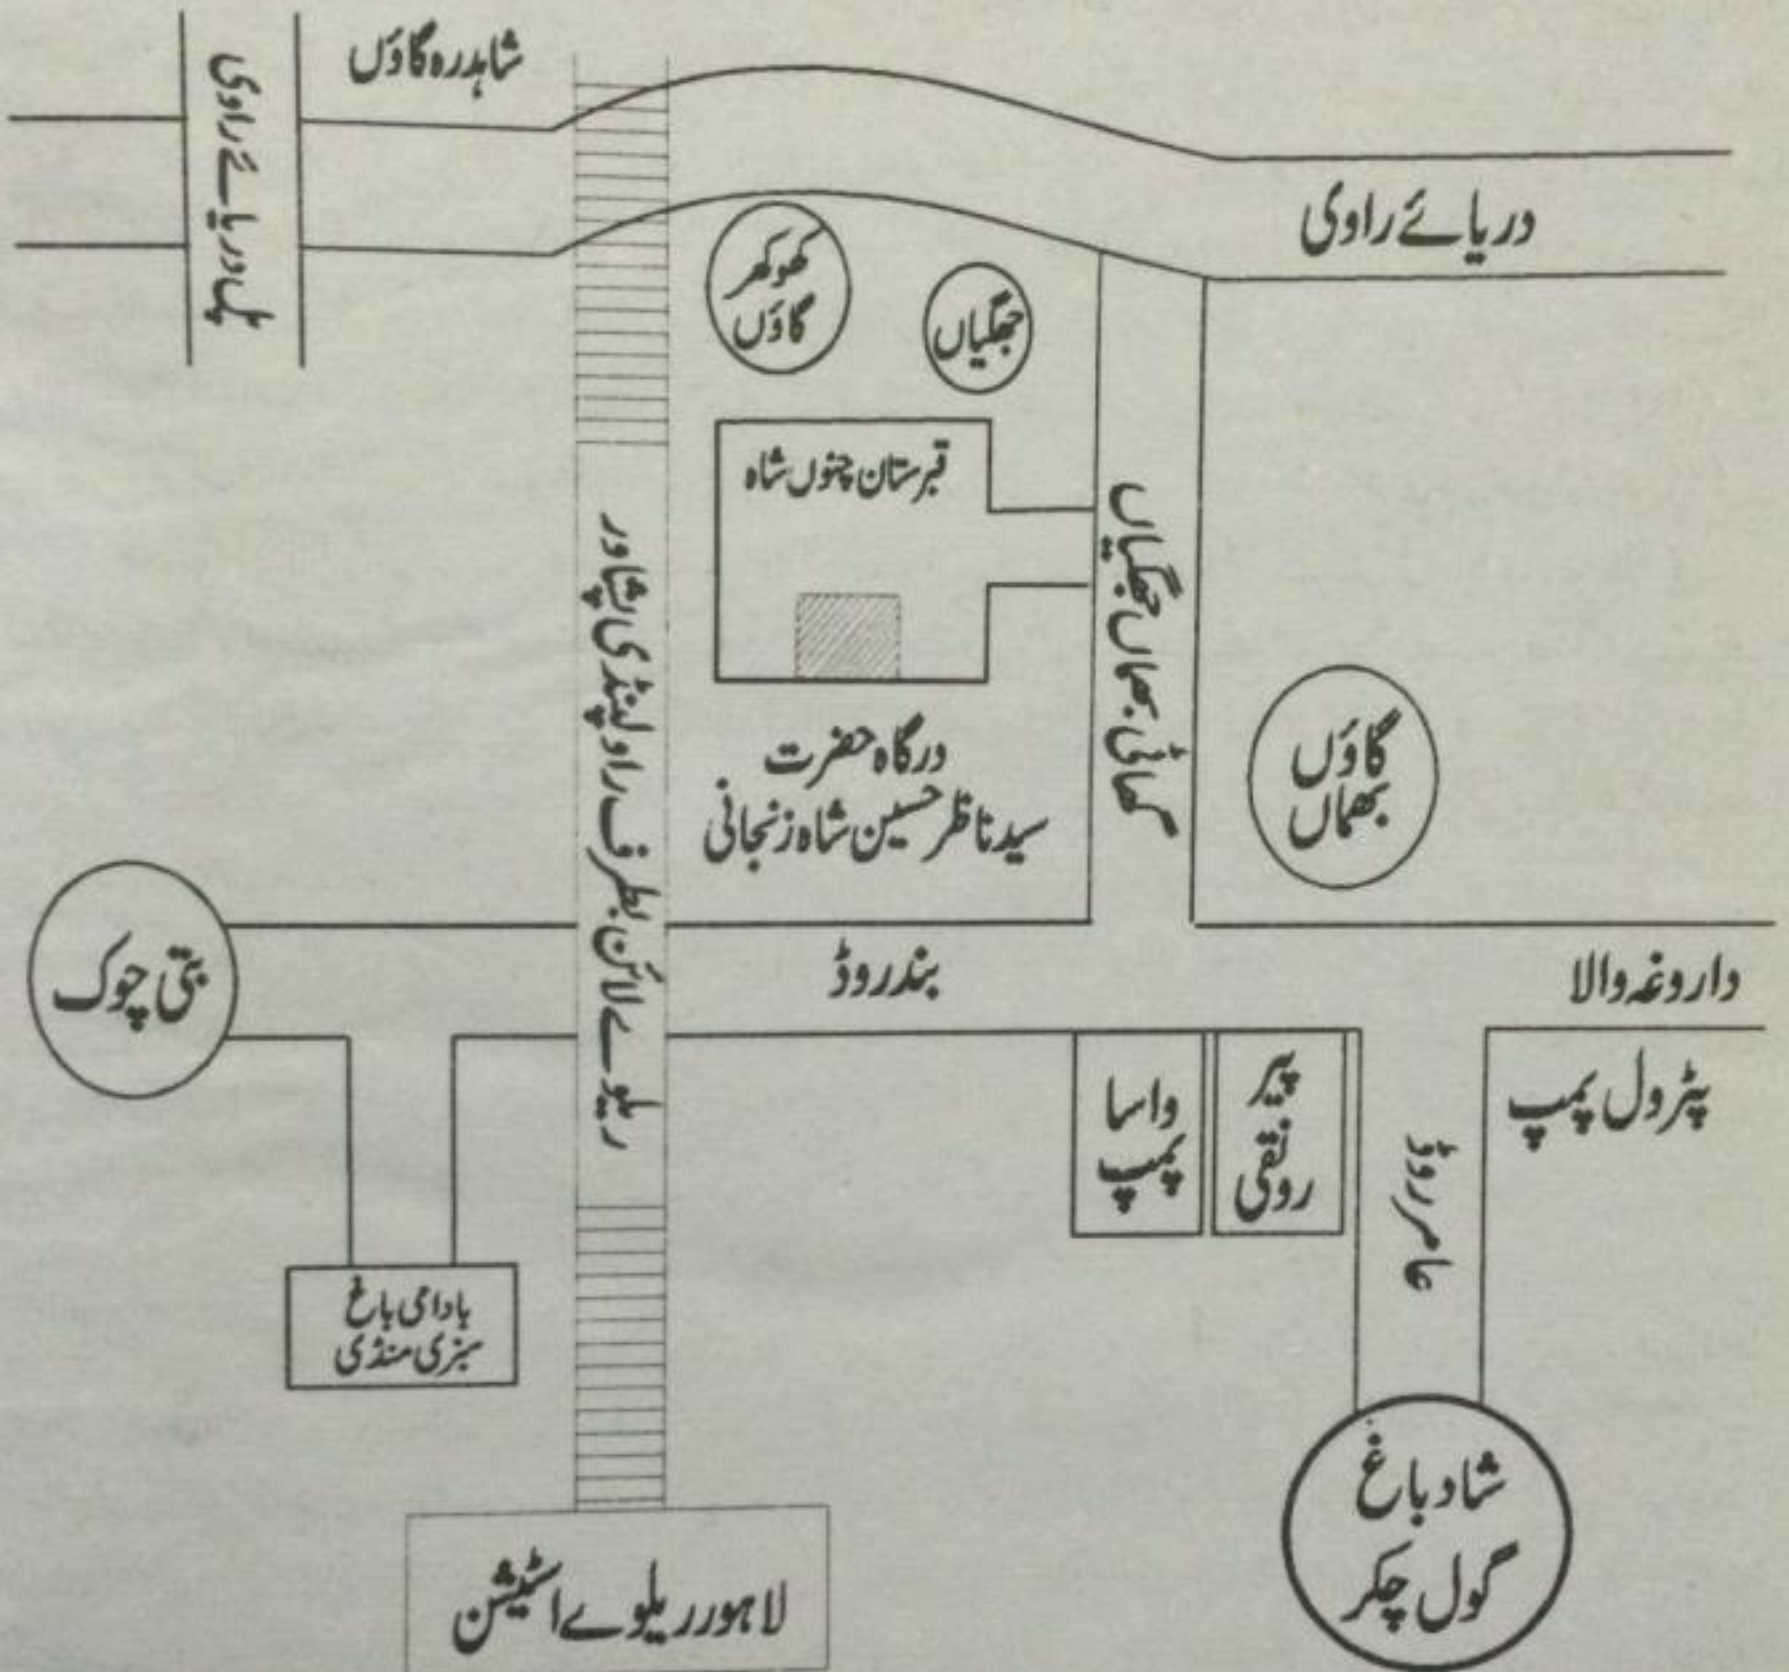 شاہدرہ گاؤں
پل دریائے راوی
دریائے راوی
کھوکھر
گاؤں
جھگیاں
قبرستان چنوں شاہ
گھاٹی بھماں جھگیاں
ریلوے لائن بطرف راولپنڈی پشاور
درگاہ حضرت
سید ناظر حسین شاہ زنجانی
گاؤں
بھماں
بتی چوک
بند روڈ
داروغہ والا
واسا
پمپ
پیر
رونقی
عامر روڈ
پٹرول پمپ
بادامی باغ
سبزی منڈی
شاد باغ
گول چکر
لاہور ریلوے اسٹیشن